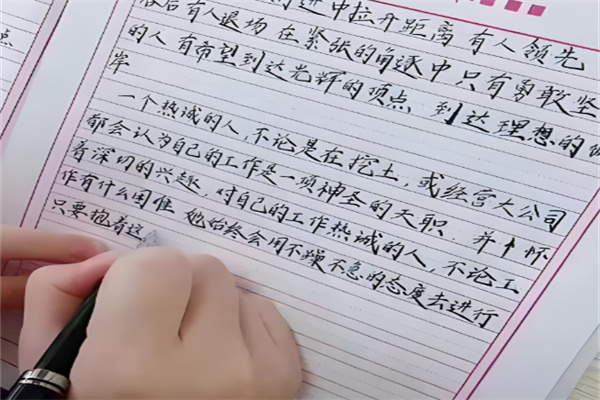 进中拉开距离 有人领先
后有人退场 在紧张的角逐中只有勇敢坚
的人 有希望到达光辉的顶点 到达理想的
岸
一个热诚的人,不论是在挖土,或经营大公司
都会认为自己的工作是一项神圣的天职 并怀
着深切的兴趣 对自己的工作热诚的人,不论工
作有什么困难 她始终会用不躁不急的态度去进行
只要抱着这
点